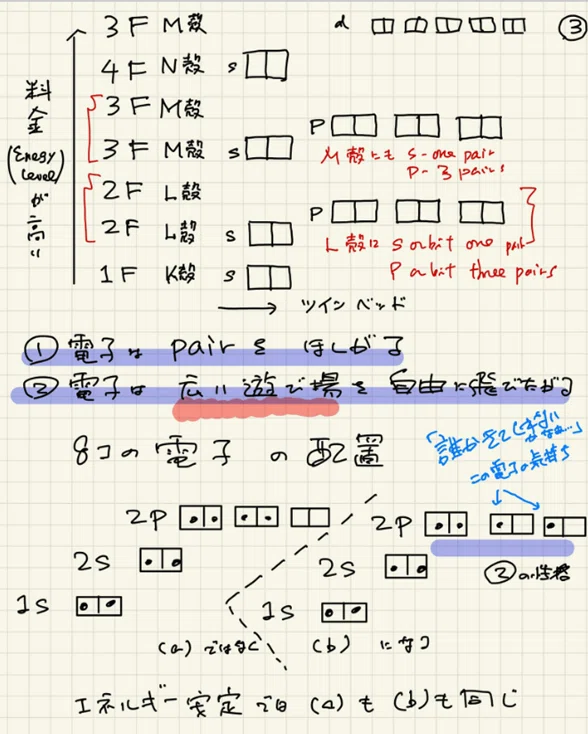 3F M殻 d ③
4F N殻 s
3F M殻 P
3F M殻 s
M殻にも s-one pair
P-3 pairs
2F L殻 P
2F L殻 s
L殻は s orbit one pair
P orbit three pairs
1F K殻 s
料金(Energy Level)が高い
→ ツインベッド
① 電子は pair を ほしがる
② 電子は 広い遊び場を自由に飛びたがる
8コの電子の配置
「誰か来てくれないかなぁ…」
この電子の気持ち
2P 2P
2s 2s
②の性格
1s 1s
(a)ではなく (b)になる
エネルギー安定では(a)も(b)も同じ